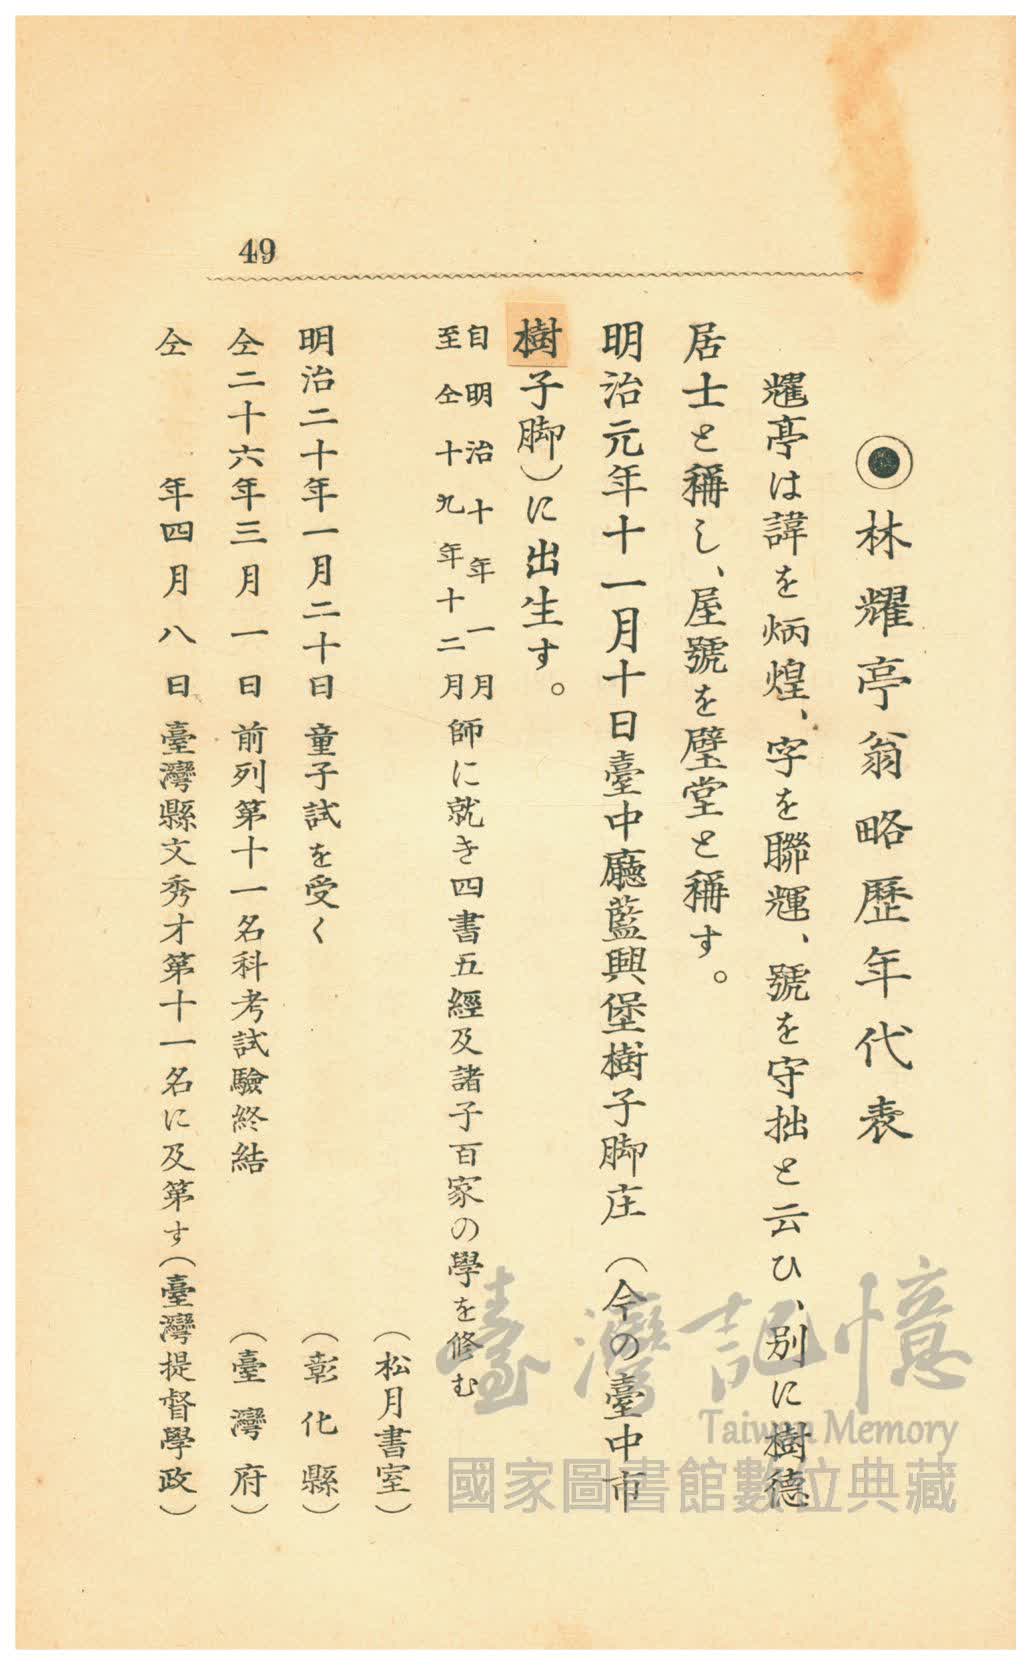 49
◉林耀亭翁略歷年代表
耀亭は諱を炳煌、字を聯輝、號を守拙と云ひ、別に樹德
居士と稱し、屋號を壁堂と稱す。
明治元年十一月十日臺中廳藍興堡樹子脚庄（今の臺中市
樹子脚）に出生す。
自明治十年一月
至仝十九年十二月
師に就き四書五經及諸子百家の學を修む
（松月書室）
明治二十年一月二十日 童子試を受く （彰化縣）
仝二十六年三月一日 前列第十一名科考試驗終結 （臺灣府）
仝 年四月八日 臺灣縣文秀才第十一名に及第す（臺灣提督學政）
臺灣記憶
Taiwan Memory
國家圖書館數位典藏